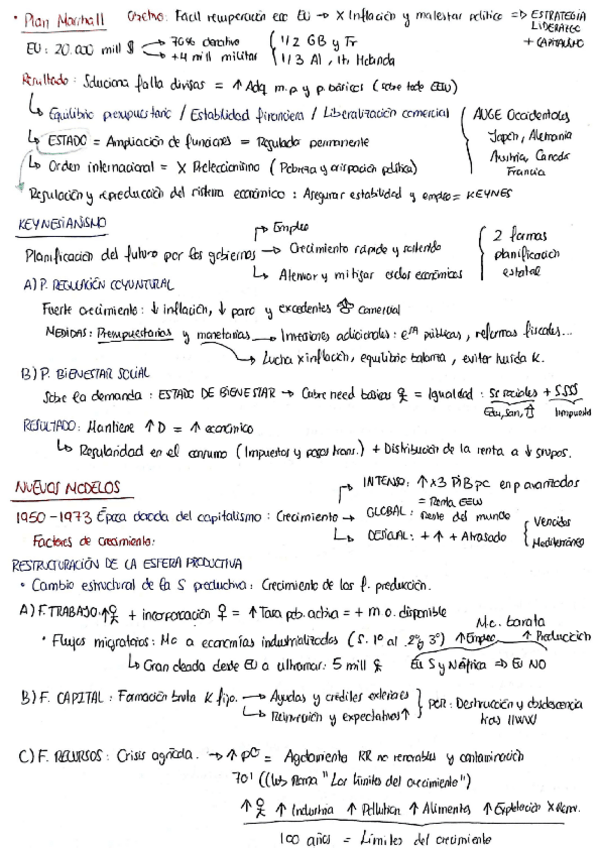 • Plan Marshall   Objetivo: Facil recuperación eco EU → X Inflación y malestar político => ESTRATEGIA LIDERAZGO + CAPITALISMO
EU: 20.000 mill $ → 70% donativo
→ +4 mill militar
1/2 GB y Fr
1/3 Al, It, Holanda
Resultado: Soluciona falta divisas = ↑ Adq m.p y p. básicos (sobre todo EEUU)
↳ Equilibrio presupuestario / Estabilidad financiera / Liberalización comercial
↳ ESTADO = Ampliación de funciones = Regulado permanente
↳ Orden internacional = X Proteccionismo (Pobreza y crispación política)
AUGE Occidentales
Japón, Alemania
Austria, Canadá
Francia
Regulación y reproducción del sistema económico: Asegurar estabilidad y empleo = KEYNES
KEYNESIANISMO
Planificación del futuro por los gobiernos → Empleo
→ Crecimiento rápido y sostenido
↳ Atenuar y mitigar ciclos económicos
2 formas
planificación
estatal
A) P. REGULACIÓN COYUNTURAL
Fuerte crecimiento: ↓ inflación, ↓ paro y excedentes comercial
MEDIDAS: Presupuestarias y monetarias → Inversiones adicionales: públicas, reformas fiscales...
→ Lucha x inflación, equilibrio balanza, evitar huida K.
B) P. BIENESTAR SOCIAL
Sobre la demanda: ESTADO DE BIENESTAR → Cubre need básicas = Igualdad: Sr sociales + SSSS
Edu, San,
Impuestos
RESULTADO: Mantiene ↑ D = ↑ económico
↳ Regularidad en el consumo (Impuestos y pagos trans.) + Distribución de la renta a ↓ grupos.
NUEVOS MODELOS
1950-1973 Época dorada del capitalismo: Crecimiento
→ INTENSO: ↑ x3 PIB pc en p avanzados
= Renta EEUU
→ GLOBAL: Resto del mundo
↳ DESIGUAL: + ↑ + Atrasado
Vencidos
Mediterráneo
Factores de crecimiento:
RESTRUCTURACIÓN DE LA ESFERA PRODUCTIVA
• Cambio estructural de la S productiva: Crecimiento de los f. producción.
A) F. TRABAJO: ↑ + incorporación ♀ = ↑ Tasa pob. activa = + m.o. disponible
Mc. barata
• Flujos migratorios: Mc a economías industrializadas (S. 1º al 2º y 3º) ↑ Empleo ↑ Producción
↳ Gran oleada desde EU a ultramar: 5 mill   EU S y N África => EU NO
B) F. CAPITAL: Formación bruta K fijo. → Ayudas y créditos exteriores
↳ Reinversión y expectativas ↑
POR: Destrucción y obsolescencia
tras IIWW
C) F. RECURSOS: Crisis agrícola. → ↑ pc = Agotamiento RR no renovables y contaminación
70' ((Club Roma "Los límites del crecimiento")
↑ ↑ Industria ↑ Pollution ↑ Alimentos ↑ Explotación
100 años = Límites del crecimiento